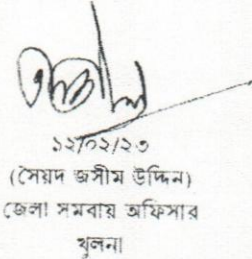 ১২/০২/২৩
(সৈয়দ জসীম উদ্দিন)
জেলা সমবায় অফিসার
খুলনা